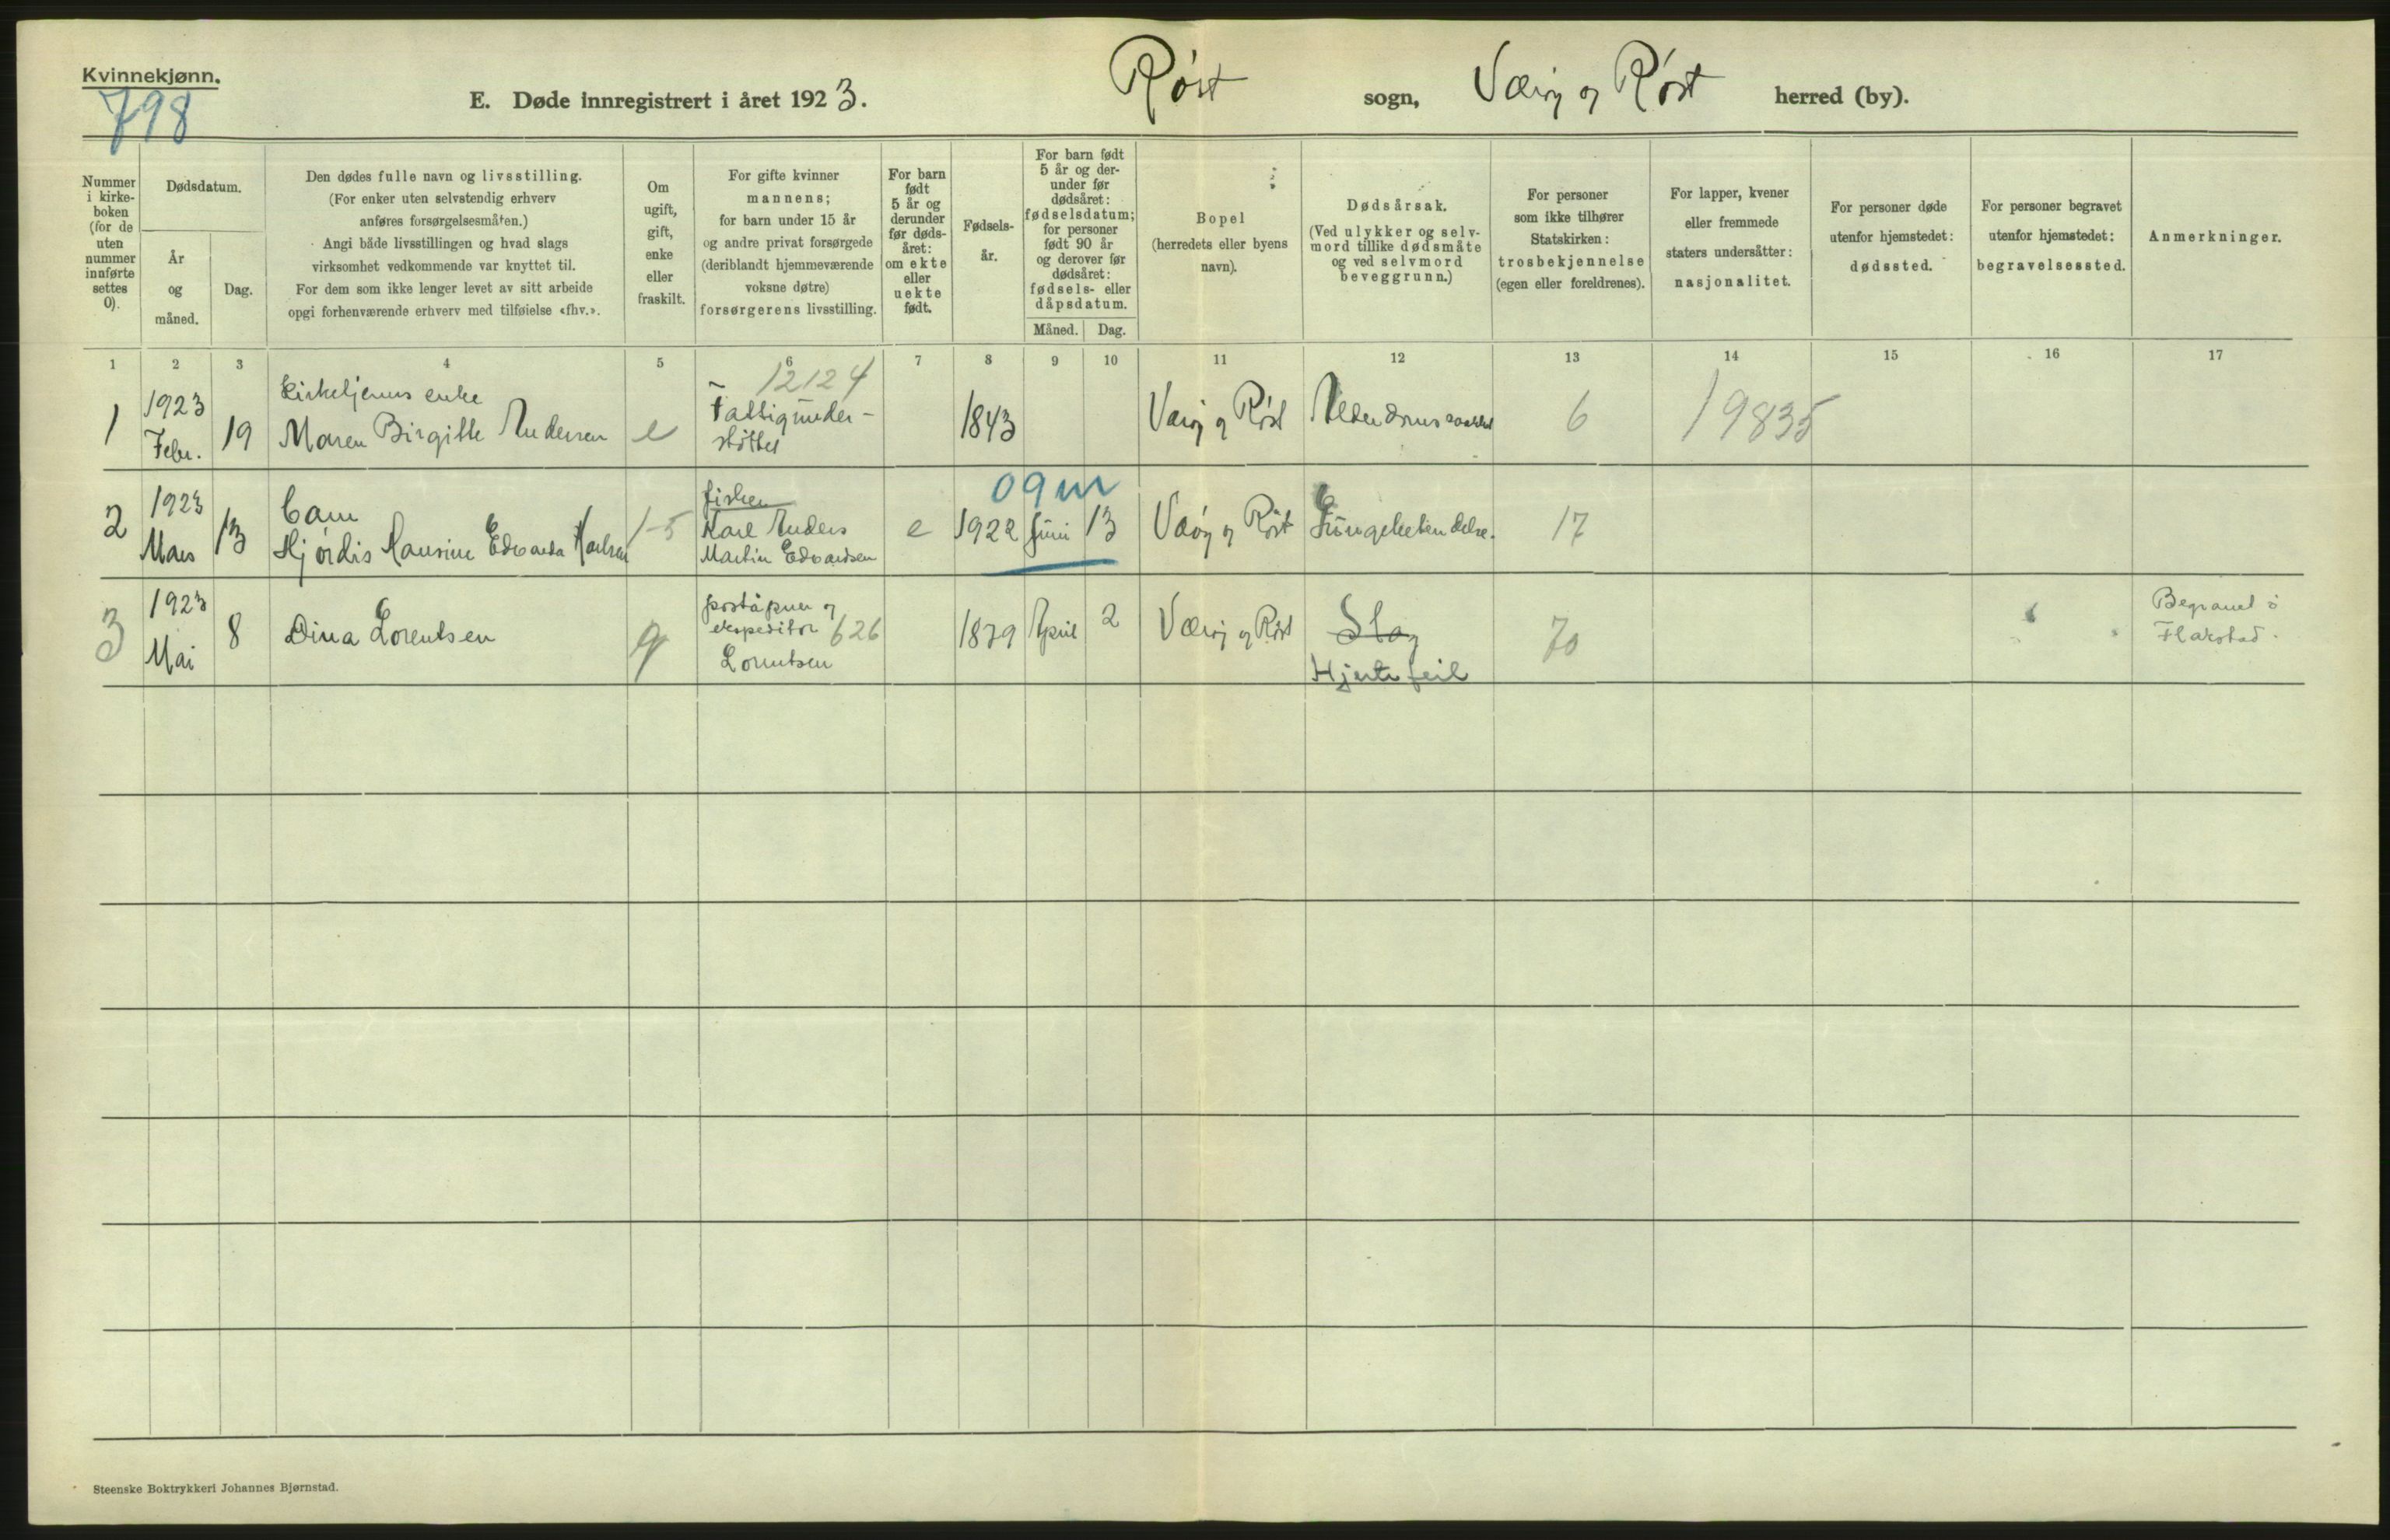 Kvinnekjønn.
798
E. Døde innregistrert i året 1923.
Røst sogn, Værøy og Røst herred (by).
Nummer i kirke-boken (for de uten nummer innførte settes 0).
Dødsdatum.
År og måned.
Dag.
Den dødes fulle navn og livsstilling.
(For enker uten selvstendig erhverv
anføres forsørgelsesmåten.)
Angi både livsstillingen og hvad slags
virksomhet vedkommende var knyttet til.
For dem som ikke lenger levet av sitt arbeide
opgi forhenværende erhverv med tilføielse «fhv.».
Om
ugift,
gift,
enke
eller
fraskilt.
For gifte kvinner
mannens;
for barn under 15 år
og andre privat forsørgede
(deriblandt hjemmeværende
voksne døtre)
forsørgerens livsstilling.
For barn
født
5 år og
derunder
før døds-
året:
om ekte
eller
uekte
født.
Fødsels-
år.
For barn født
5 år og der-
under før
dødsåret:
fødselsdatum;
for personer
født 90 år
og derover før
dødsåret:
fødsels- eller
dåpsdatum.
Måned. Dag.
Bopel
(herredets eller byens
navn).
Dødsårsak.
(Ved ulykker og selv-
mord tillike dødsmåte
og ved selvmord
beveggrunn.)
For personer
som ikke tilhører
Statskirken:
trosbekjennelse
(egen eller foreldrenes).
For lapper, kvener
eller fremmede
staters undersåtter:
nasjonalitet.
For personer døde
utenfor hjemstedet:
dødssted.
For personer begravet
utenfor hjemstedet:
begravelsessted.
Anmerkninger.
1 2 3 4 5 6 7 8 9 10 11 12 13 14 15 16 17
1
1923
Febr.
19
Kirketjeners enke
Maren Birgitte Andersen
e
12124
Fattigunder-
støttet
1843
Værøy og Røst
6
19835
2
1923
Mars
13
barn
Hjørdis Hansine Edvarda Karlsen
1-5
fisker
Karl Anders
Martin Edvardsen
e
09m
1922
Juni
13
Værøy og Røst
Lungebetendelse.
17
3
1923
Mai
8
Dina Lorentsen
g
poståpner og
ekspeditør 626
Lorentsen
1879
April
2
Værøy og Røst
Slag
Hjertefeil
70
Begravet i
Flakstad.
Steenske Boktrykkeri Johannes Bjørnstad.